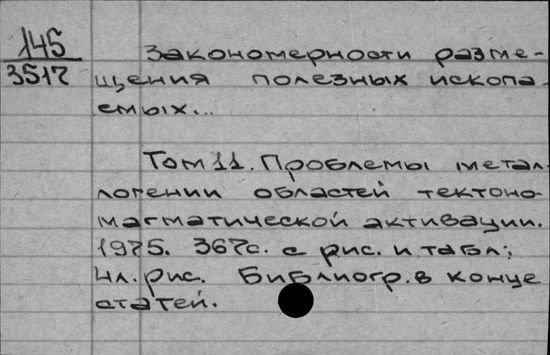 145
3517
Закономерности разме-
щения полезных ископа-
емых...
Том 11. Проблемы метал-
логении областей тектоно-
магматической активации.
1975. 367с. с рис. и табл;
4л. рис. Библиогр. в конце
статей.